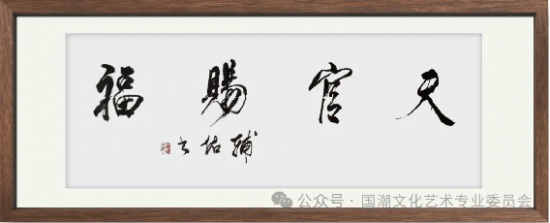 天官賜福
輔佑书
公众号 · 国潮文化艺术专业委员会